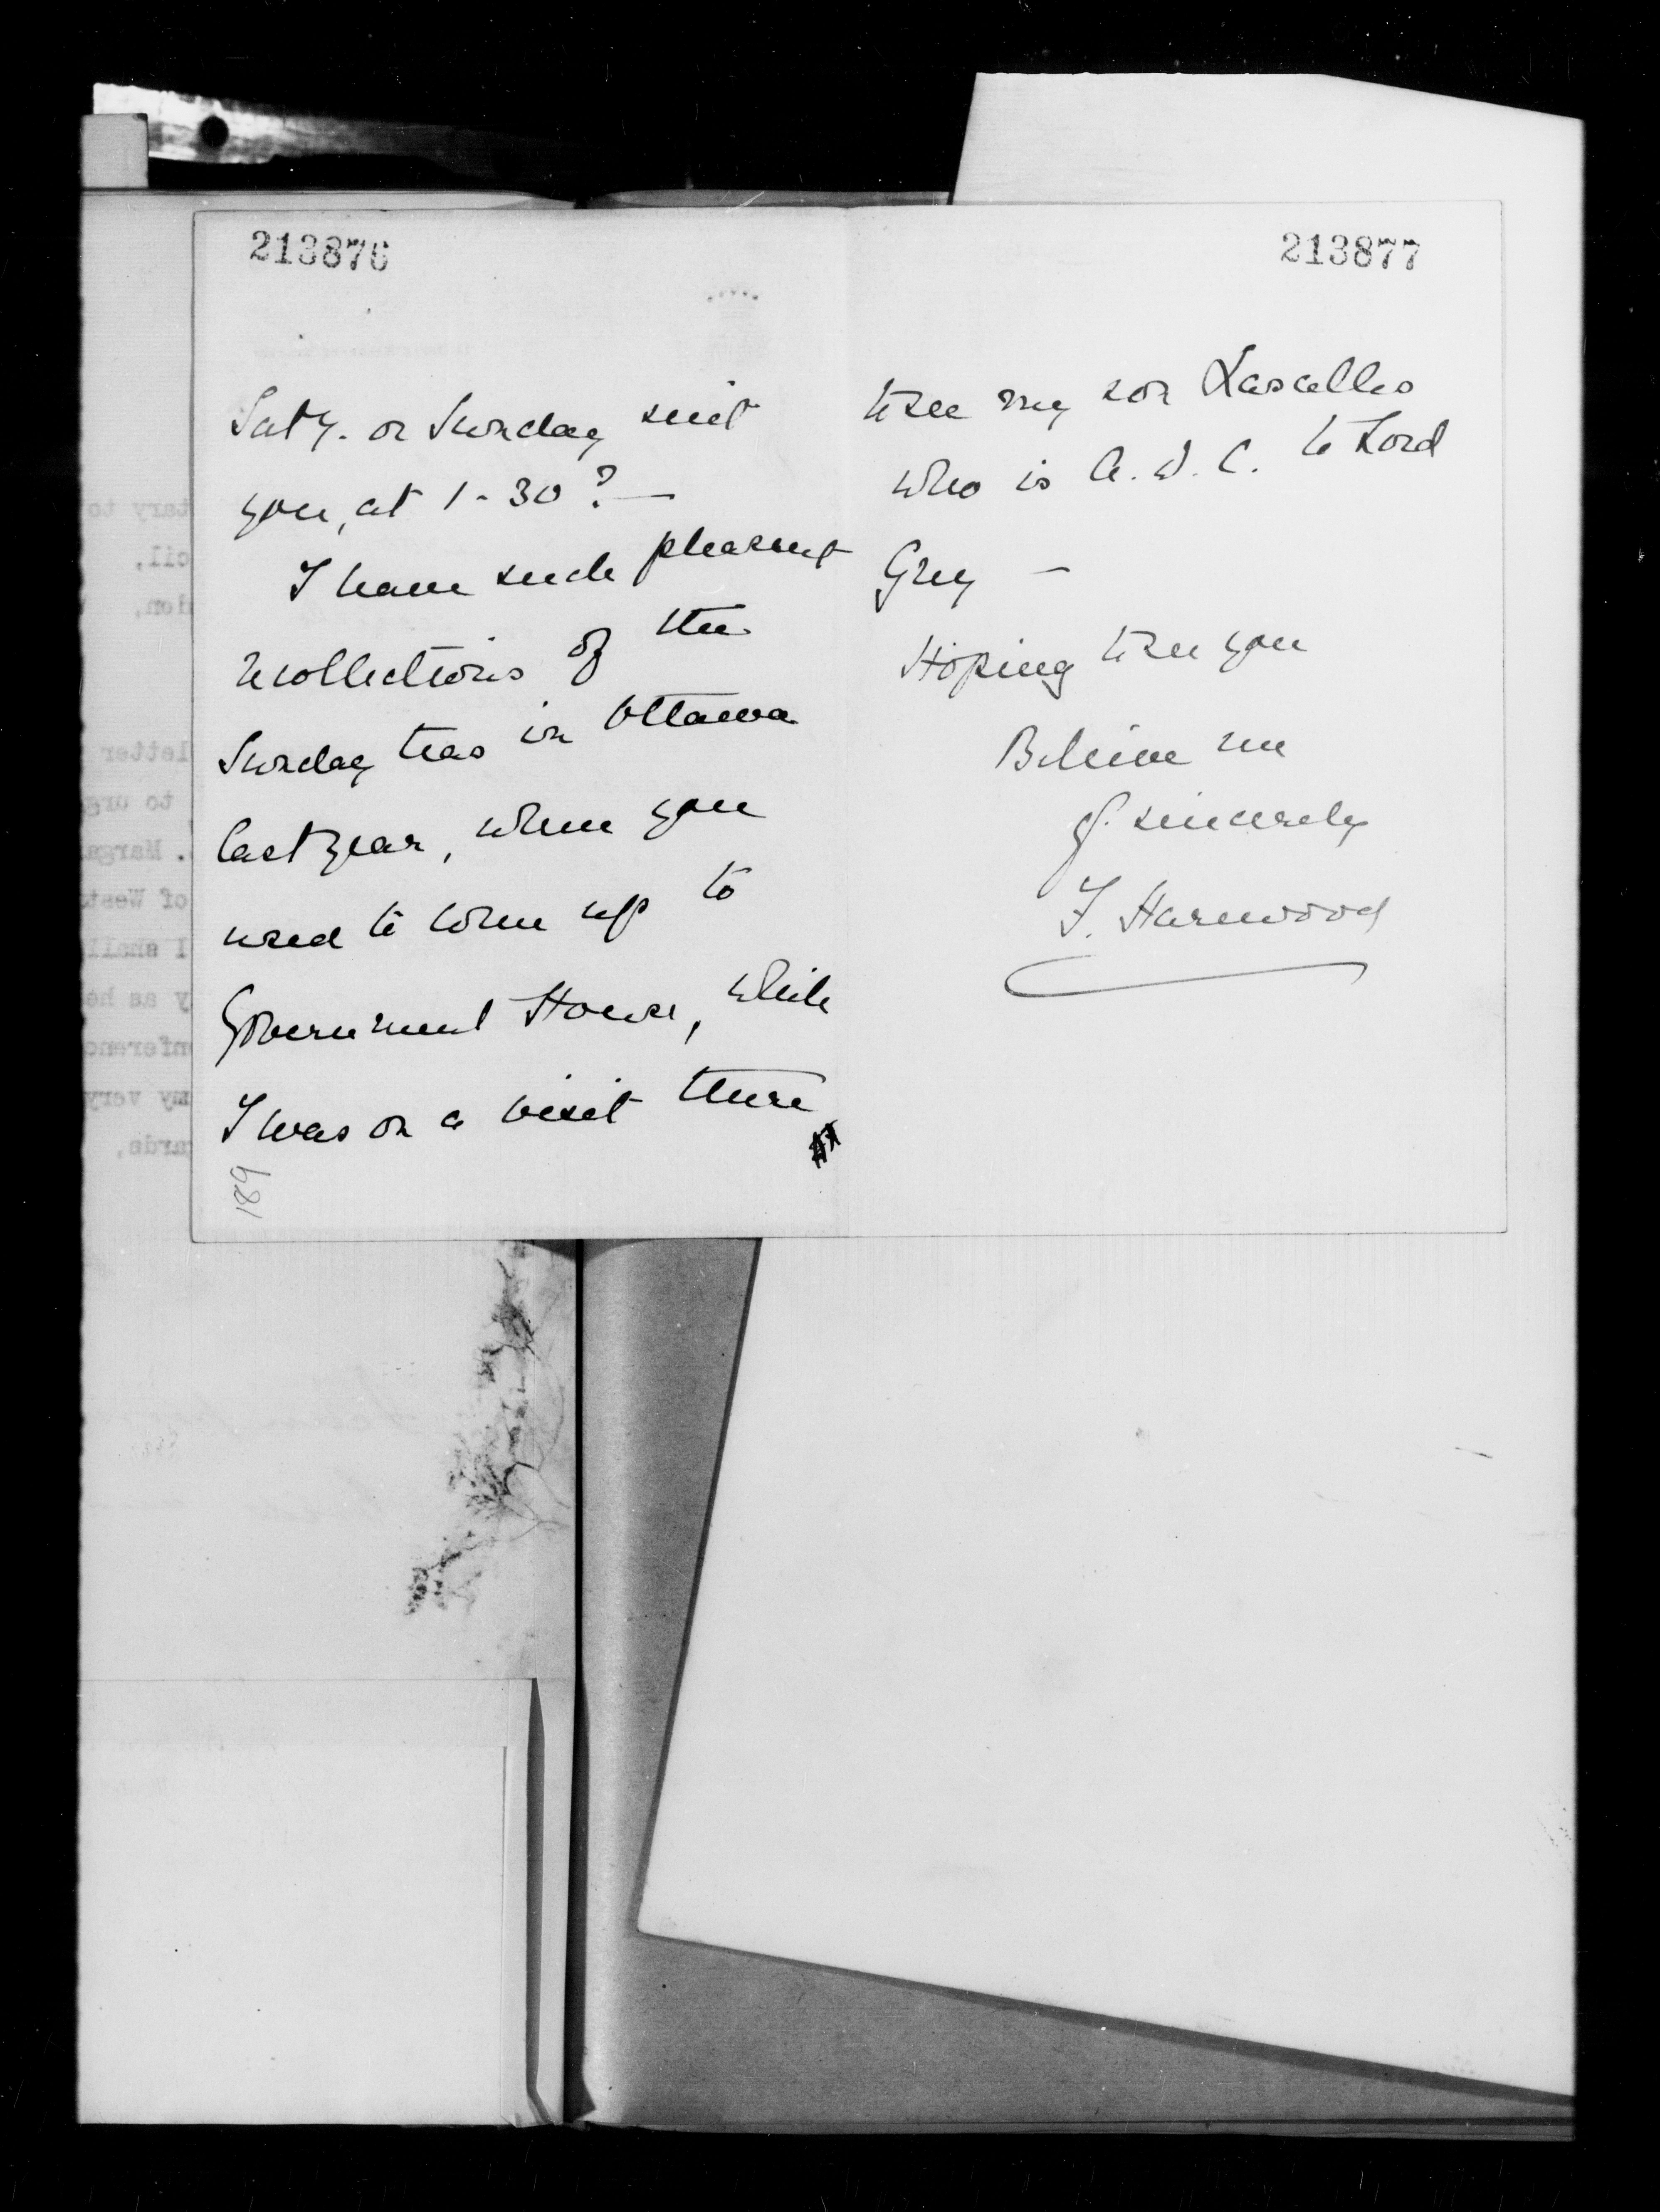 213876
Saty. or Sunday suit
you, at 1-30? —
I have such pleasant
recollections of the
Sunday teas in Ottawa
last year, when you
used to come up to
Government House, while
I was on a visit there
189
213877
to see my son Lascelles
who is A.D.C. to Lord
Grey —
Hoping to see you
Believe me
Yr. sincerely
F. Harewood
tary to
cil,
ion,
letter
to urg
. Marga
of West
I shall
y as he
nferenc
my very
gards,